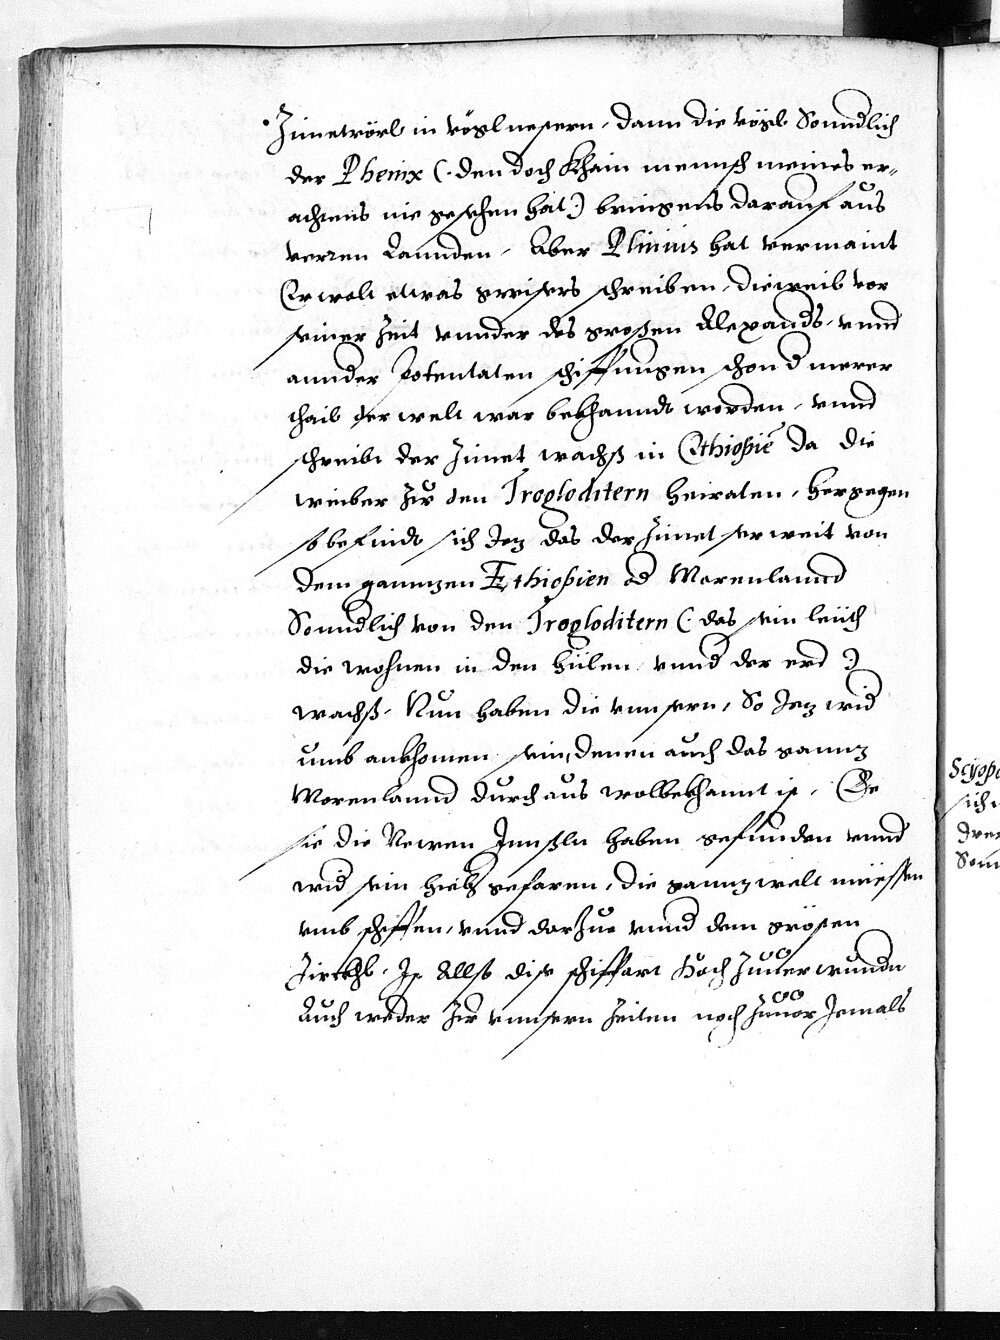 Zimetrörl in vögl nestern, dann die vögl Sonndlich
der Phenix (: den doch Khain mennsch meines er=
achtens nie gesehen hat :) bringens darauf aus
verren Lannden, Aber Plinius hat vermaint
Er welt etwas gwisers schreiben, dieweil vor
seiner Zeit vnnder des grossen Alexanders, vnnd
annder Potentaten schiffungen schon d merer
thail der welt war bekhanndt worden, vnnd
schreibt der Zimet wachß in Ethiopie da die
weiber Zu den Trogloditern heiraten, hergegen
so befindt sich Jez das der Zimet ser weit von
dem ganntzen Ethiopien od Morenlannd
Sonndlich von den Trogloditern (: das sein leüth
die wohnen in den hülen vnnd der erd :)
wachß, Nun haben die vnnsern, So Jez wid
umb ankhomen sein, denen auch das ganntz
Morenlannd durchaus wolbekhannt ist, Ee
sie die Newen Jnnßln haben gefunden vnnd
wid sein hieher gefaren, die ganntz welt müessen
vmb schiffen, vnnd darzue vnnd dem grösten
Zirckhl, Jst Allso dise schiffart hoch Zuuerwundn
Auch weder Zu vnnsern Zeiten noch Zuuor Jemals
sich
Sonn